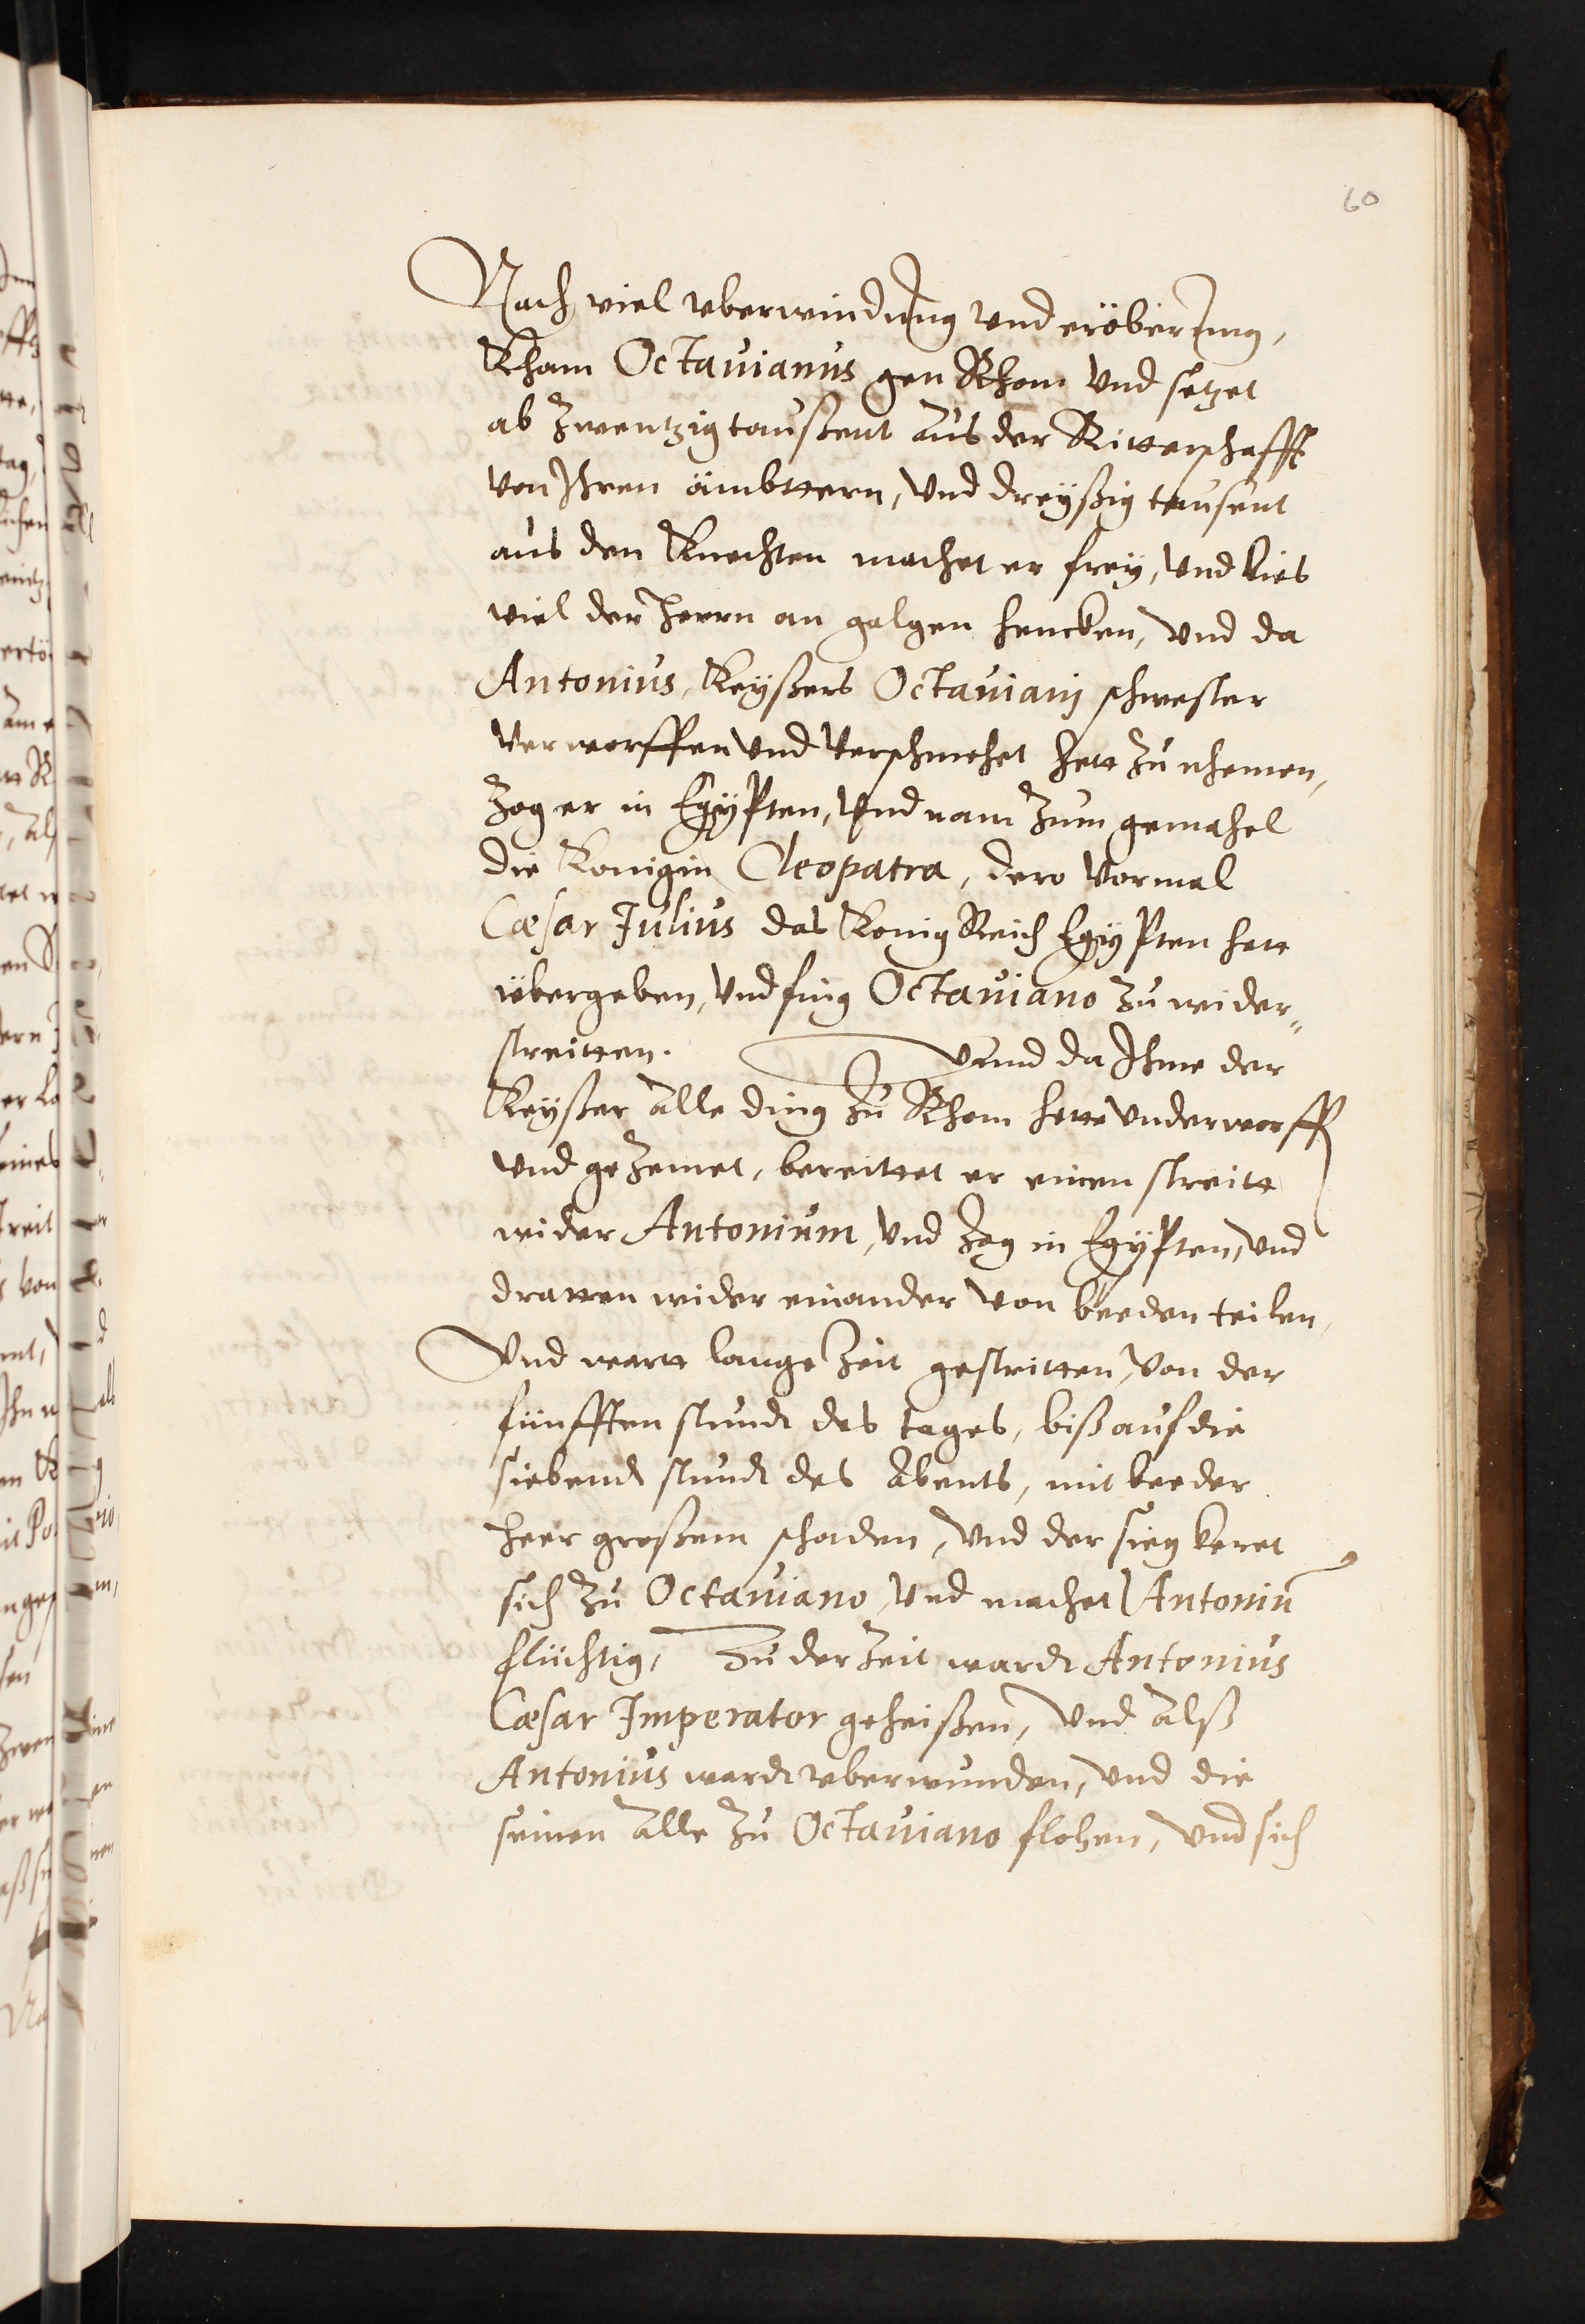 60
Nach viel vberwindung vnd eröberung,
Kham Octauianus gen Rhom vnd setzet
ab zwentzig taußent aus der Ritterschafft
von Ihren ämbttern, vnd dreyßig tausent
aus den Knechten machet er frey, vnd lies
viel der herrn an galgen hencken, vnd da
Antonius, Keyßers Octauianj schwester
verworffen vnd verschmehet hett zu nhemen,
zog er in Egypten, vnd nam zum gemahel
die Konigin Cleopatra, dero vormal
Cæsar Julius das Konig Reich Egypten hett
übergeben, vnd fing Octauiano zu wider„
streitten. Vnnd da Ihme der
Keyßer alle ding zu Rhom hette vnderworff
vnd gezemet, bereittet er einen streitt
wider Antonium, vnd zog in Egypten, vnd
dratten wider einander von beeden teilen,
Vnd wartt lange zeit gestritten, von der
fünfften stundt des tages, biß auf die
siebendt stundt des Abents, mit beeder
heer großem schaden, vnd der sieg keret
sich zu Octauiano, vnd machet Antoniū
flüchtig, Zu der zeit wardt Antonius
Cæsar Imperator geheißen, vnd alß
Antonius wardt vberwunden, vnd die
seinen alle zu Octauiano flohen, vnd sich